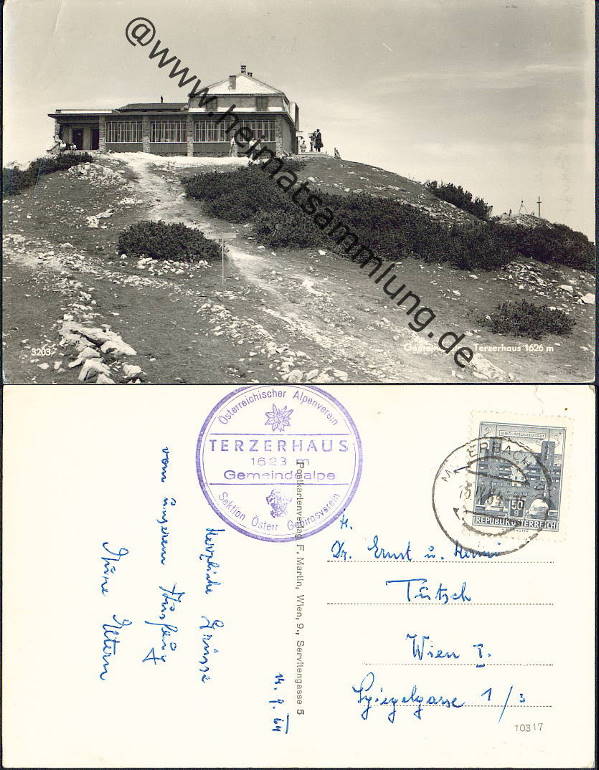 @www.heimatsammlung.de
3203
Terzerhaus 1626 m
Österreichischer Alpenverein
TERZERHAUS
1623 m
Gemeindealpe
Sektion Österr. Gebirgsverein
50 g
REPUBLIK ÖSTERREICH
Postkartenverlag F. Martin, Wien, 9., Servitengasse 5
14. 9. 64
Herzliche Grüsse
vom unserem Ausflug
Eltern
Dr. Ernst u.
Tütsch
Wien I.
Spiegelgasse 1/3
10317